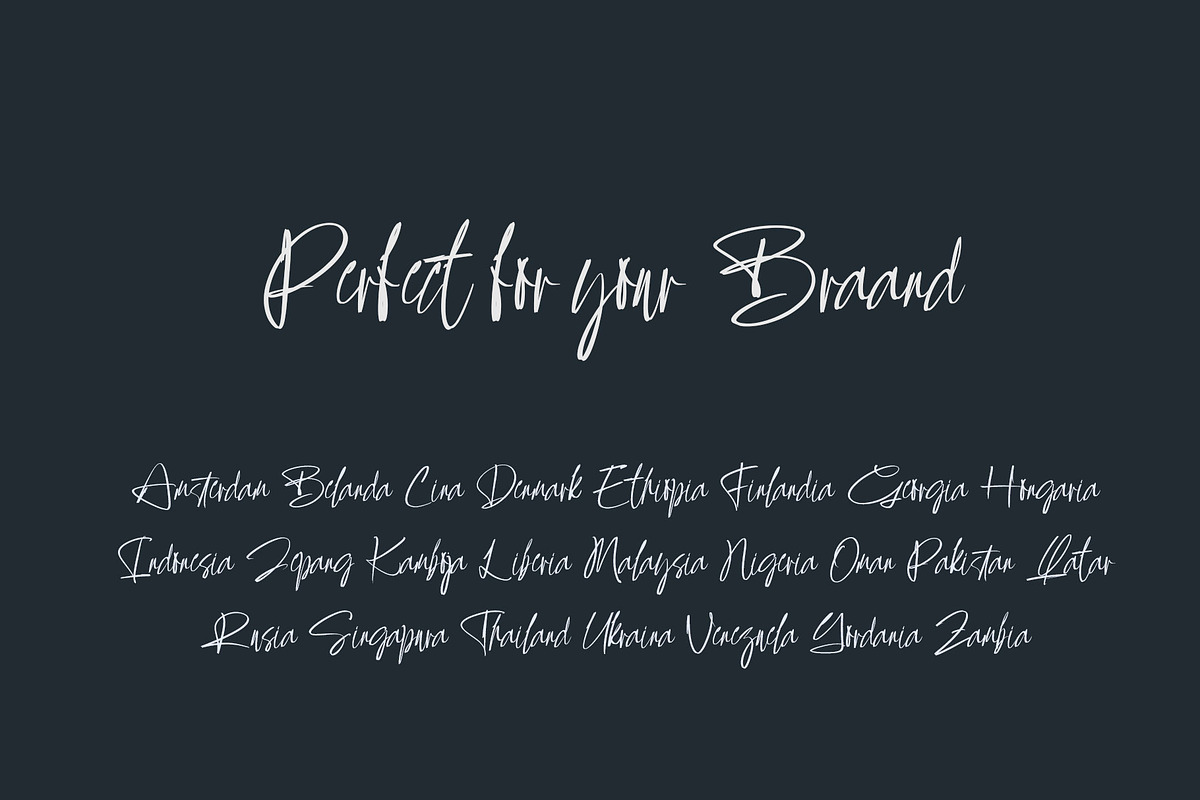 Perfect for your Braand
Amsterdam Belanda Cina Denmark Ethiopia Finlandia Georgia Hongaria
Indonesia Jepang Kamboja Liberia Malaysia Nigeria Oman Pakistan Qatar
Rusia Singapura Thailand Ukraina Venezuela Yordania Zambia